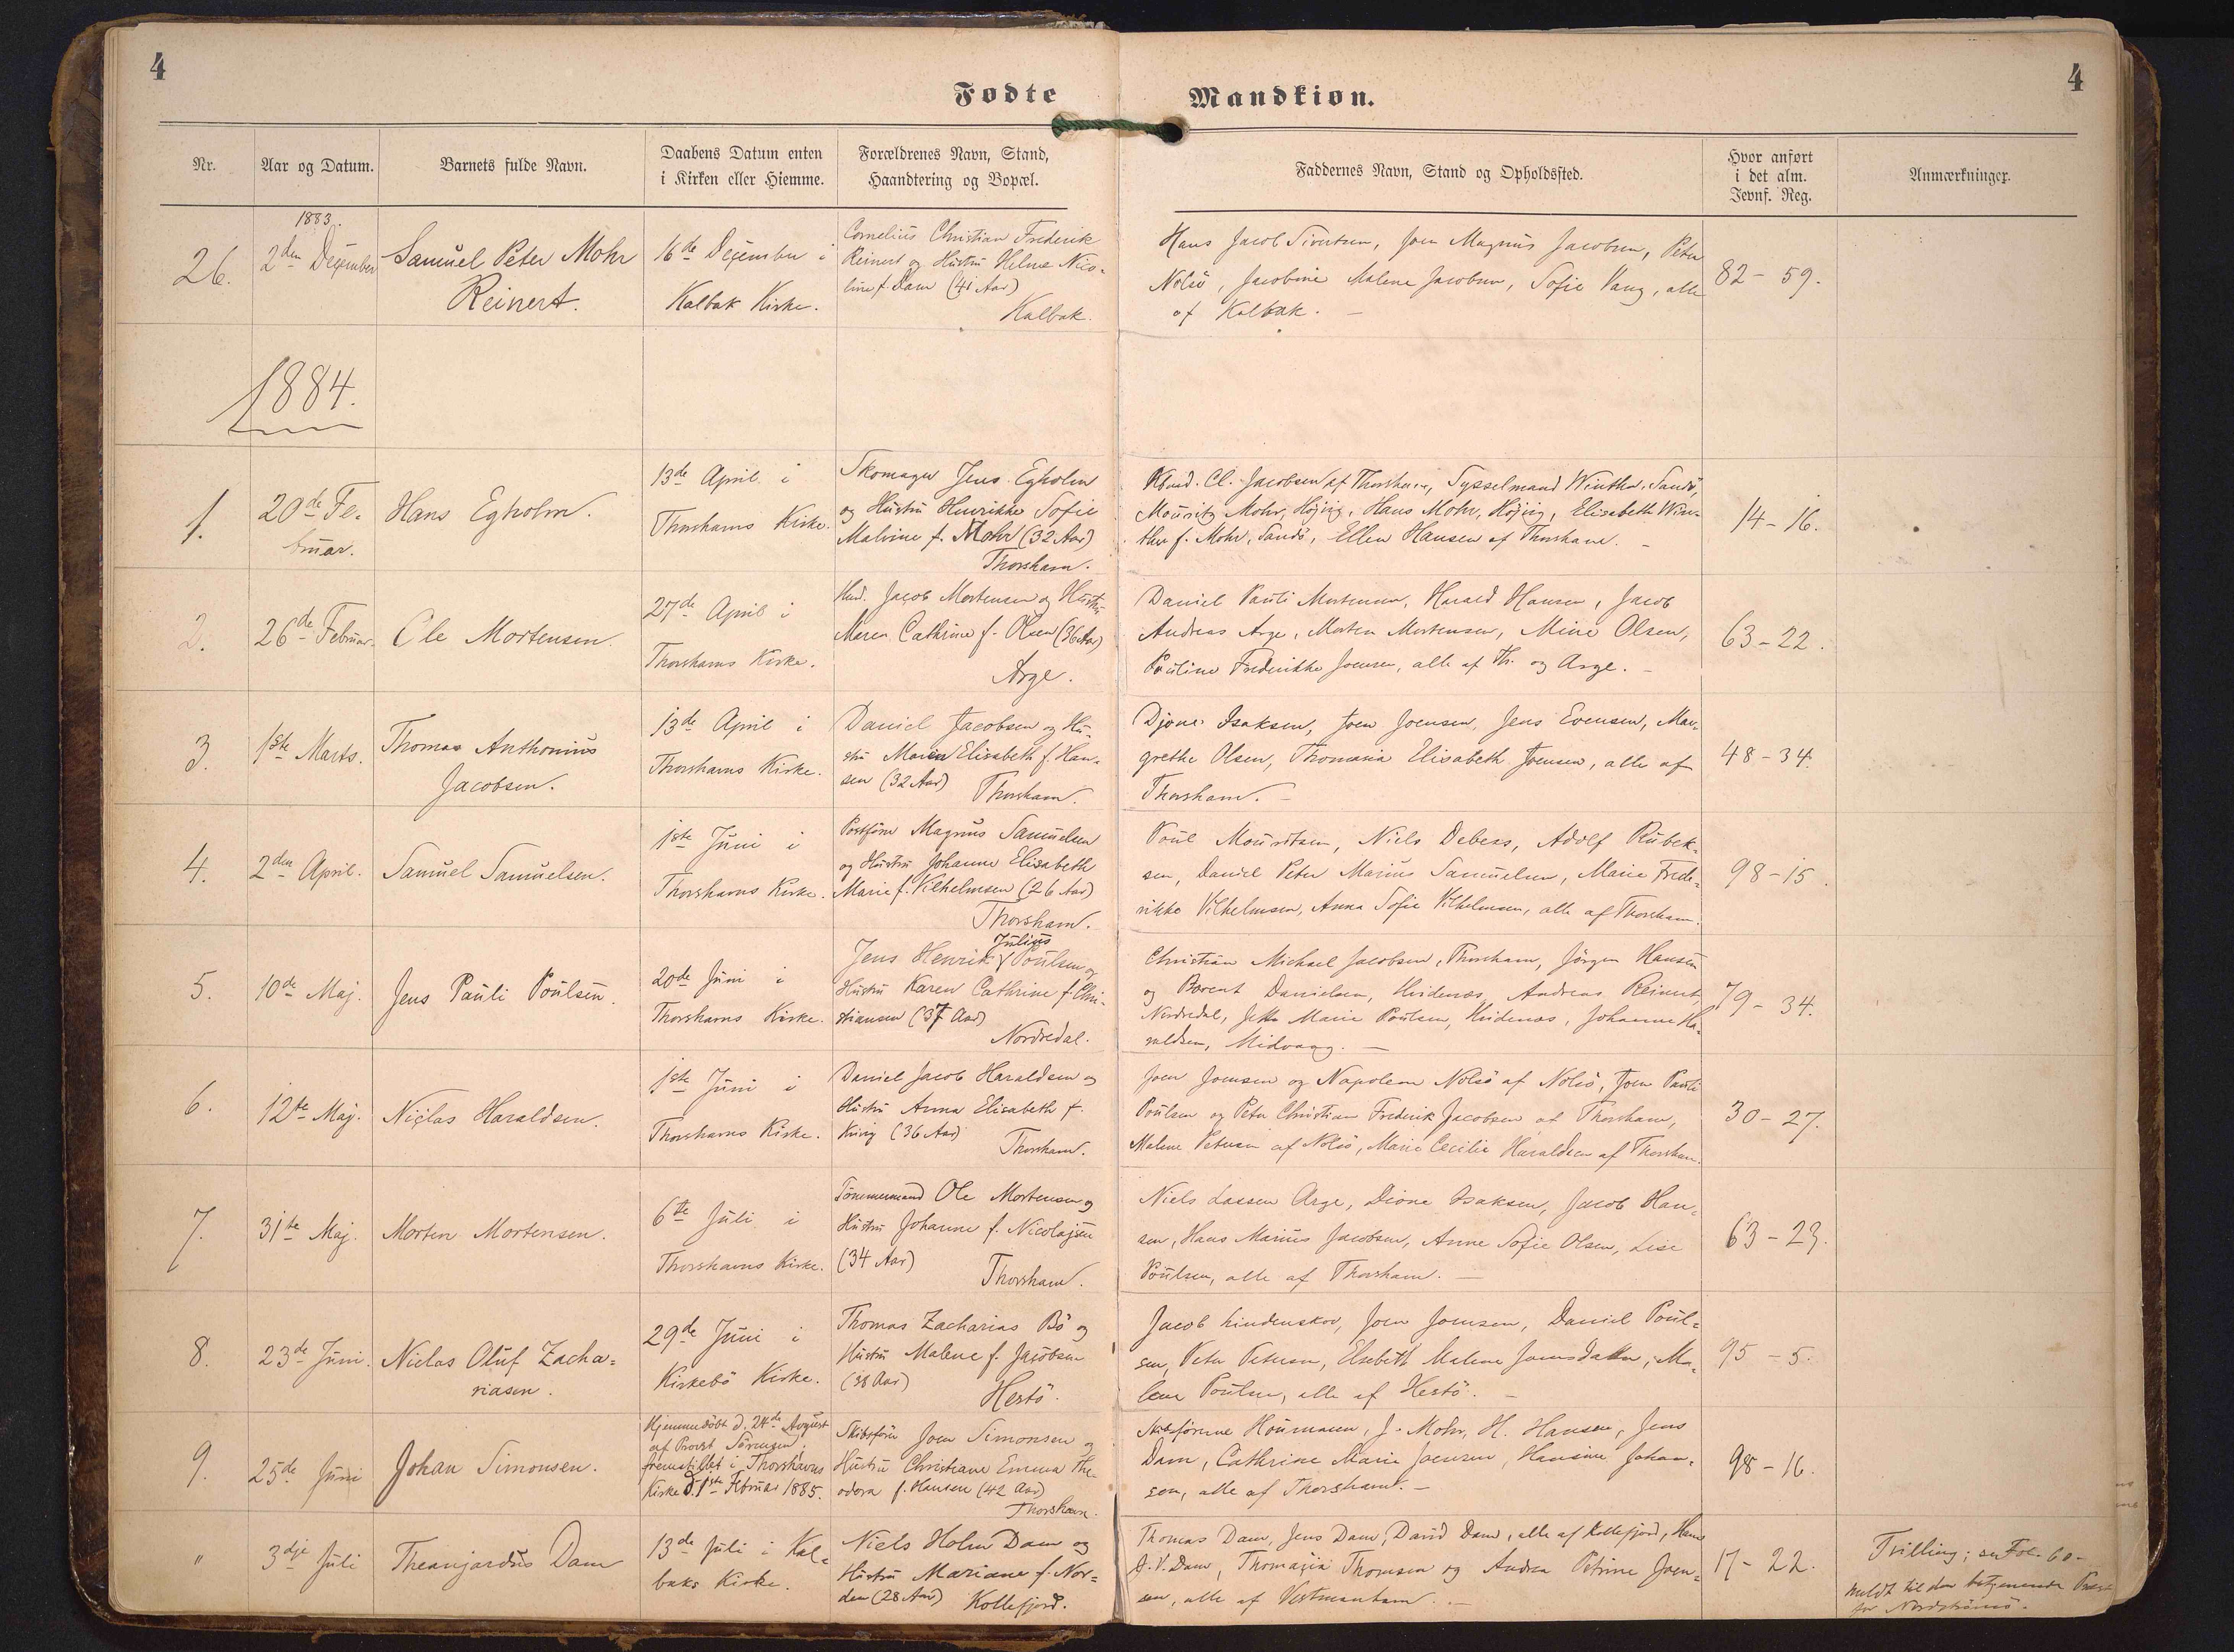 4
4
Fødte
Mandkiøn.
Nr.
Aar og Datum.
Barnets fulde Navn.
Daabens Datum enten
i Kirken eller Hiemme.
Forældrenes Navn, Stand,
Haandtering og Bopæl.
Faddernes Navn, Stand og Opholdssted.
Hvor anført
i det alm.
Jevnf. Reg.
Anmærkninger.
26.
1883.
2den December
Samuel Peter Mohr
Reinert.
16de December i
Kalbak Kirke.
Cornelius Christian Frederik
Reinert og Hustru Helene Nico=
line f. Dam (41 Aar)
Kalbak.
Hans Jacob Sivertsen, Joen Magnus Jacobsen, Peter
Nolsö, Jacobine Malene Jacobsen, Sofie Vang, alle
af Kalbak. –
82 – 59.
1884.
1.
20de Fe=
bruar.
Hans Egholm.
13de April i
Thorshavns Kirke.
Skomager Jens Egholm
og Hustru Henrikke Sofie
Malvine f. Mohr (32 Aar)
Thorshavn.
Cl. Jacobsen af Thorshavn, Sysselmand Winther, Sandö,
Mouritz Mohr, Höjvig, Hans Mohr, Höjvig, Elisabeth Win=
ther f. Mohr, Sandö, Ellen Hansen af Thorshavn. –
14 – 16.
2.
26de Februar.
Ole Mortensen.
27de April i
Thorshavns Kirke.
Jacob Mortensen og Hustru
Maren Cathrine f. Olsen (36 Aar)
Arge.
Daniel Pauli Mortensen, Harald Hansen, Jacob
Andreas Arge, Morten Mortensen, Mine Olsen,
Pouline Frederikke Joensen, alle af Th. og Arge. –
63 – 22.
3.
1ste Marts.
Thomas Anthonius
Jacobsen.
13de April i
Thorshavns Kirke.
Daniel Jacobsen og Hu=
stru Maren Elisabeth f. Han=
sen (32 Aar)
Thorshavn.
Djone Isaksen, Joen Joensen, Jens Evensen, Mar=
grethe Olsen, Thomasia Elisabeth Joensen, alle af
Thorshavn. –
48 – 34.
4.
2den April.
Samuel Samuelsen.
1ste Juni i
Thorshavns Kirke.
Postförer Magnus Samuelsen
og Hustru Johanne Elisabeth
Marie f. Vilhelmsen (26 Aar)
Thorshavn.
Poul Mouritsen, Niels Debess, Adolf Rubek=
sen, Daniel Peter Marius Samuelsen, Marie Frede=
rikke Vilhelmsen, Anna Sofie Vilhelmsen, alle af Thorshavn.
98 – 15.
5.
10de Maj.
Jens Pauli Poulsen.
20de Juni i
Thorshavns Kirke.
Julius
Jens Henrik Poulsen og
Hustru Karen Cathrine f. Chri=
stiansen (37 Aar)
Nordredal.
Christian Michael Jacobsen, Thorshavn, Jörgen Hansen
og Berent Danielsen, Hvidenæs, Andreas Reinert,
Nordredal, Marie Poulsen, Hvidenæs, Johanne Ha=
raldsen, Midvaag. –
79 – 34.
6.
12te Maj.
Niclas Haraldsen.
1ste Juni i
Thorshavns Kirke.
Daniel Jacob Haraldsen og
Hustru Anna Elisabeth f.
(36 Aar)
Thorshavn.
Joen Joensen og Napoleon Nolsö af Nolsö, Joen Pauli
Poulsen og Peter Christian Frederik Jacobsen af Thorshavn,
Malene Petersen af Nolsö, Marie Cecilie Haraldsen af Thorshavn.
30 – 27.
7.
31te Maj.
Morten Mortensen.
6te Juli i
Thorshavns Kirke.
Tömmermand Ole Mortensen og
Hustru Johanne f. Nicolajsen
(34 Aar)
Thorshavn.
Niels Lassen Arge, Dione Isaksen, Jacob Han=
sen, Hans Marius Jacobsen, Anne Sofie Olsen, Lise
Poulsen, alle af Thorshavn. –
63 – 23.
8.
23de Juni.
Niclas Oluf Zacha=
riasen.
29de Juni i
Kirkebö Kirke.
Thomas Zacharias Bö og
Hustru Malene f. Jacobsen
(38 Aar)
Hestö.
Jacob Lindenskov, Joen Joensen, Daniel Poul=
sen, Peter Petersen, Elsebeth Malene Joensdatter, Ma=
lene Poulsen, alle af Hestö. –
95 – 5.
9.
25de Juni
Johan Simonsen.
Hjemmedöbt d. 24de August
af Provst Sörensen;
fremstillet i Thorshavns
Kirke d. 1ste Februar 1885.
Skibsförer Joen Simonsen og
Hustru Christiane Emma The=
odora f. Hansen (42 Aar)
Thorshavn.
Skibsförerne J. Mohr, H. Hansen, Jens
Dam, Cathrine Marie Joensen, Hansine Johan=
sen, alle af Thorshavn. –
98 – 16.
"
3dje Juli
Theanjardus Dam
13de Juli i Kal=
baks Kirke.
Niels Holm Dam og
Hustru Mariane f. Nor=
den (28 Aar)
Kollefjord.
Thomas Dam, Jens Dam, David Dam, alle af Kollefjord, Hans
J. V. Dam, Thomasia Thomsen og Andrea Petrine Joen=
sen, alle af Vestmanhavn. –
17 – 22.
Tvilling; se Fol. 60 –
meldt til den Præst
for Nordströmö.